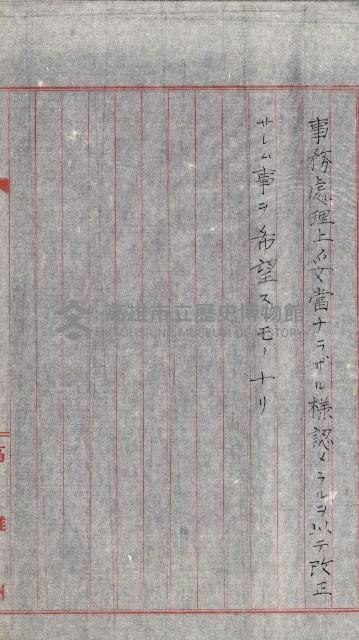 事務處理上妥當ナラザル樣認メラルヲ以テ改正
サレム事ヲ希望スモノナリ
高雄市立歷史博物館
KAOHSIUNG MUSEUM OF HISTORY
高雄州